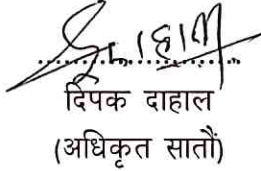 दिपक दाहाल
(अधिकृत सातौं)